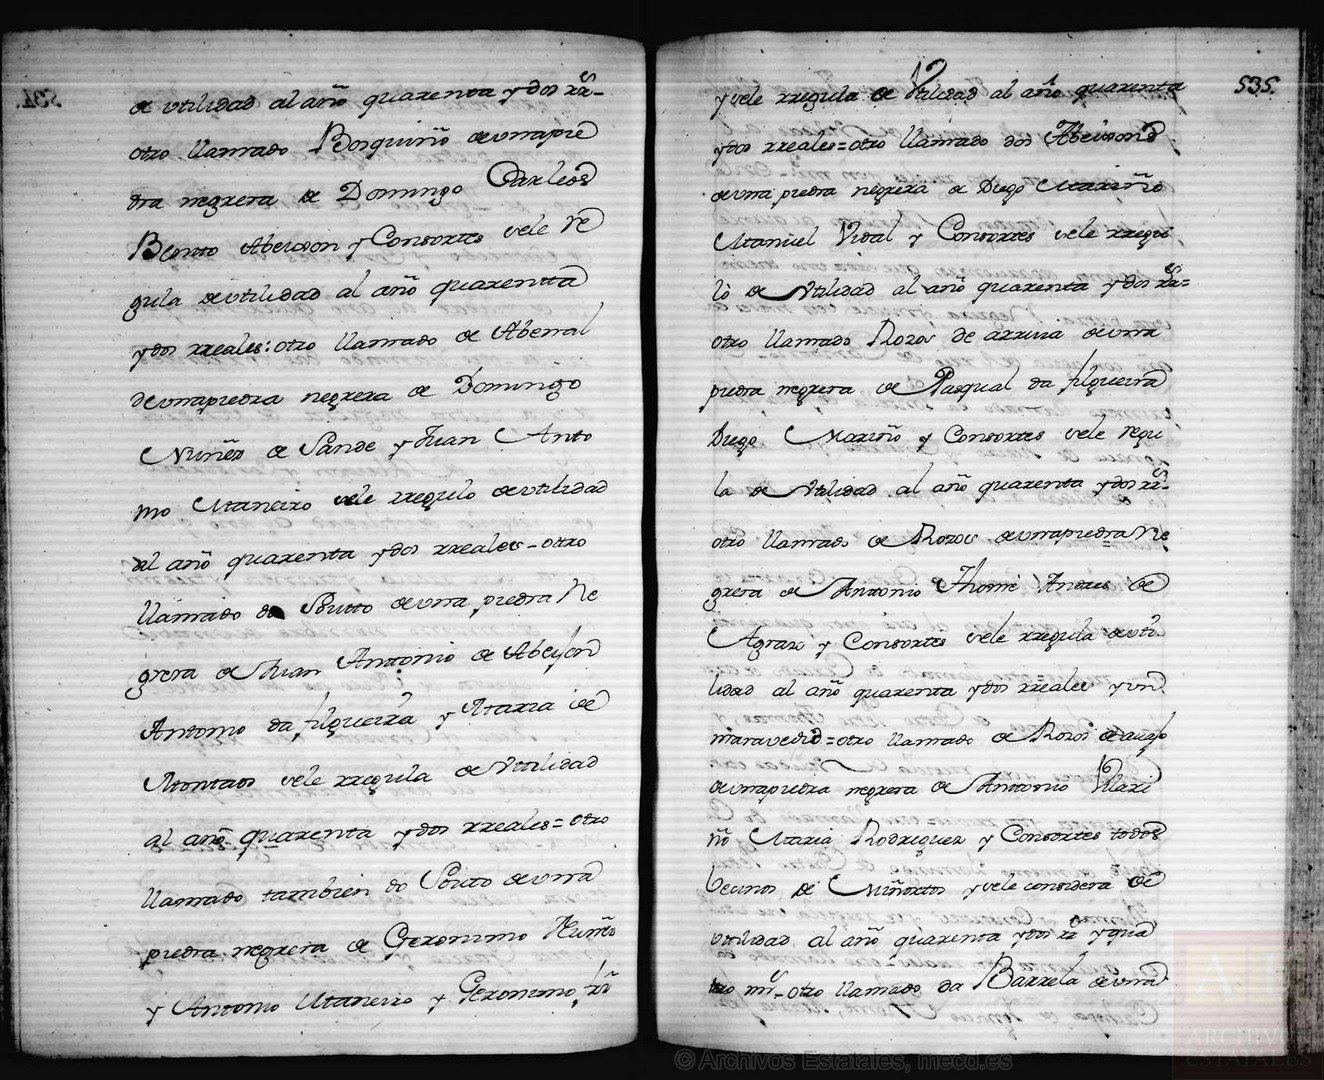 de utilidad al año quarenta y dos rrs-
otro llamado Bosquiño de una pie
dra negrera de Domingo Carleos
Benito Abeixon y Consortes sele re
gula de utilidad al año quarentta
y dos rreales: otro llamado de Abenal
de una piedra negrera de Domingo
Nuñez de Sande y Juan Anto
nio Maneiro sele rregulo de utilidad
al año quarenta y dos rreales - otro
llamado do Soutto de una piedra Ne
grera de Juan Anttonio de Abeyjon
Antonio da filgueira y Maria de
Montaos sele rregula de Utilidad
al año quarenta y dos rreales = otro
llamado tambien do Souto de una
piedra negrera de Geronimo
y Antonio Maneiro y Geronimo
535.
y sele rregula de Utilidad al año quarenta
y dos rreales = otro llamado dos Abeixons
de una piedra negrera de Diego Mariño
Manuel Vidal y Consortes sele rregu
lò de Utilidad al año quarenta y dos rrs=
otro llamado Rozos de arriva de una
piedra negrera de Pasqual da filgueira
Diego Mariño y Consortes sele regu
la de Utilidad al año quarenta y dos rrs-
otro llamado de Rozos de una piedra Ne
grera de Antonio Thome Andres de
Agrazo y Consortes sele rregula de uti
lidad al año quarenta y dos rreales y un
maravedis = otro llamado de Rozos de avajo
de una piedra negrera de Anttonio Vilari
ño Maria Rodriguez y Consortes todos
becinos de Miñortos y sele considera de
utilidad al año quarenta y dos rrs y qua
tro mrs - otro llamado da Barrela de una
© Archivos Estatales, mecd.es
ARCHIVOS
ESTATALES